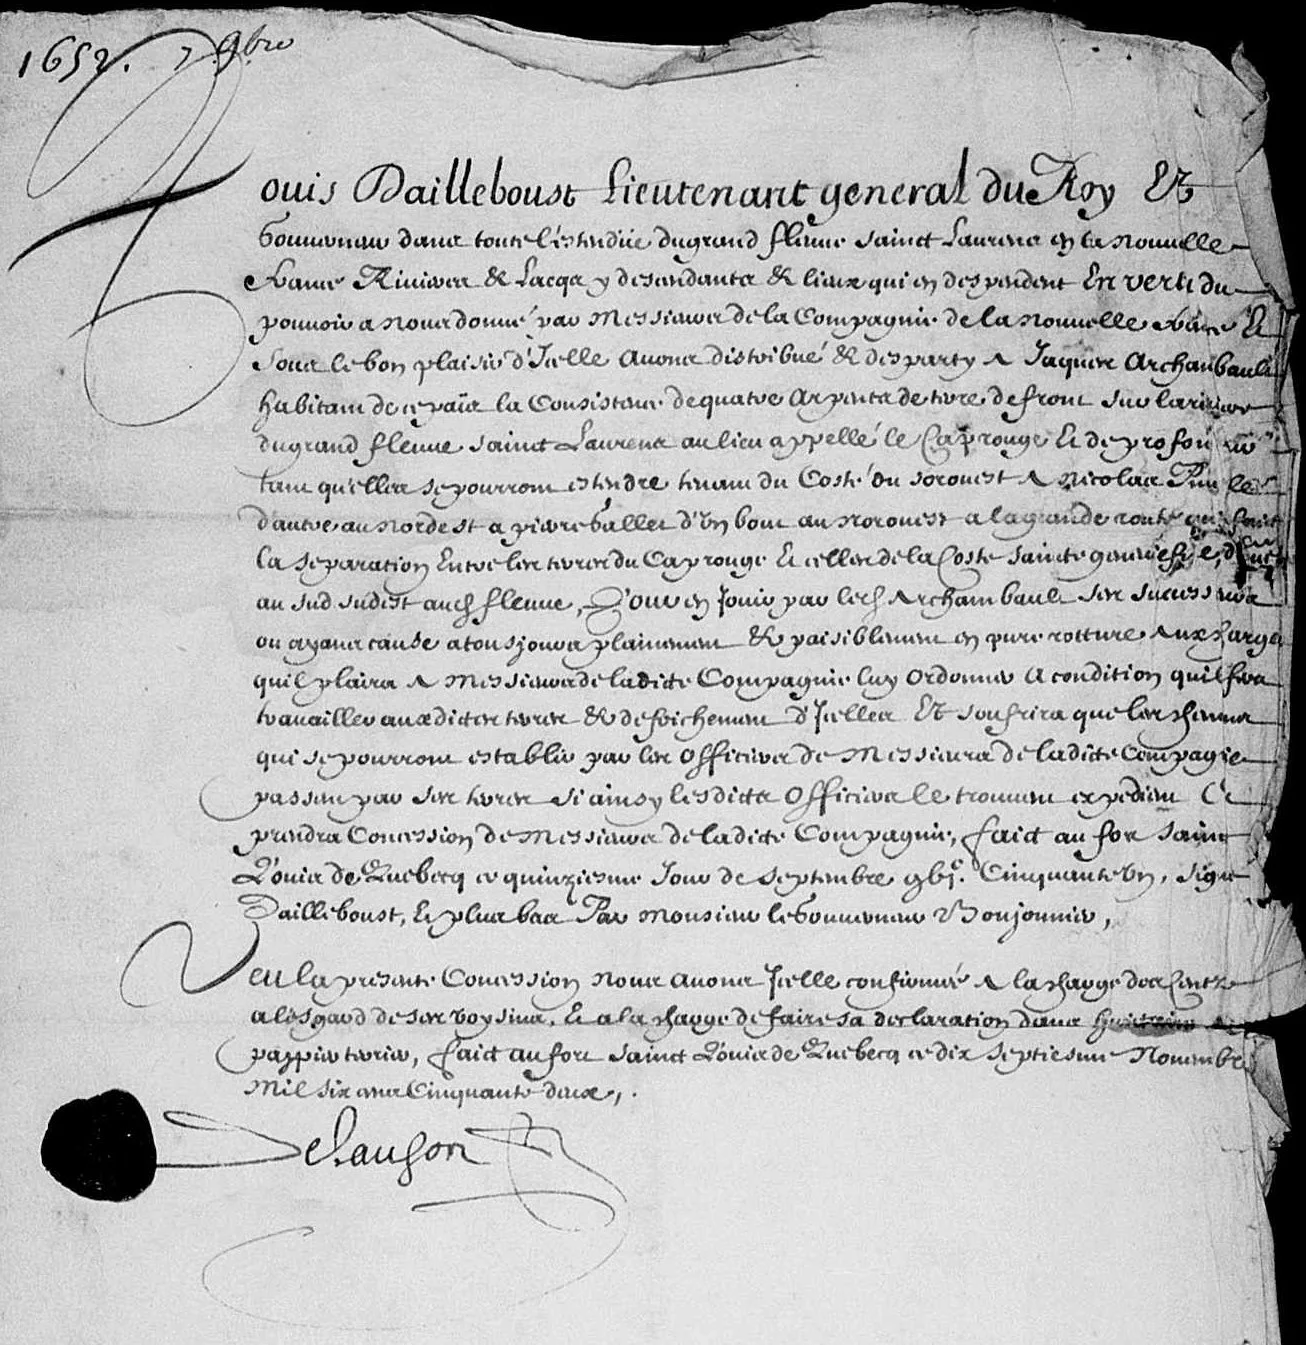 1652. 7 9bre
Louis Dailleboust Lieutenant general du Roy Et
Gouverneur dans toute l'estendüe du grand fleuve sainct Laurens en la nouvelle
france Rivieres & Lacqs y descendants & lieux qui en despendent En vertu du
pouvoir a nous donné par Messieurs de la Compagnie de la nouvelle france Et
soubs le bon plaisir d'Icelle Avons distribué & desparty A Jaques Archambault
habitant de ce païs la Consistence de quatre Arpents de terre de front sur la riviere
du grand fleuve sainct Laurens au lieu appellé le Cap rouge Et de profondeur
tant qu'elles se pourront estendre tenant du Costé du sorouest A Nicolas
d'autre au nordest a pierre Gallet d'Un bout au norouest a la grande route qui faict
la separation Entre les terres du Cap rouge Et celles de la Coste saincte geneviefve,
au sud sudest audt fleuve, Pour en Jouir par ledt Archambault ses successeurs
ou ayans cause a tousjours plainement & paisiblement en pure rotture Aux charges
qu'il plaira A Messieurs de ladicte Compagnie luy ordonner A condition qu'il fera
travailler auxdictes terres & defrichement d'Icelles Et soufrira que les chemins
qui se pourront establir par les officiers de Messieurs de ladicte Compagie
passent par ses terres si ainsy lesdicts Officiers le trouvent expedient Et
prendra Concession de Messieurs de ladicte Compagnie, faict au fort sainct
Louis de Quebecq ce quinziesme Jour de septembre gbjc. Cinquante Un, signé
Dailleboust, Et plus bas Par Monsieur le Gouverneur Boujonnier,
Veu la presente Concession nous avons Icelle confirmée A la charge des Cents
a l'esgard de ses voysins, Et a la charge de faire sa declaration dans
pappier terrier, faict au fort sainct Louis de Quebecq ce dix septiesme Novembre
Mil six cens Cinquante deux,.
Delauson